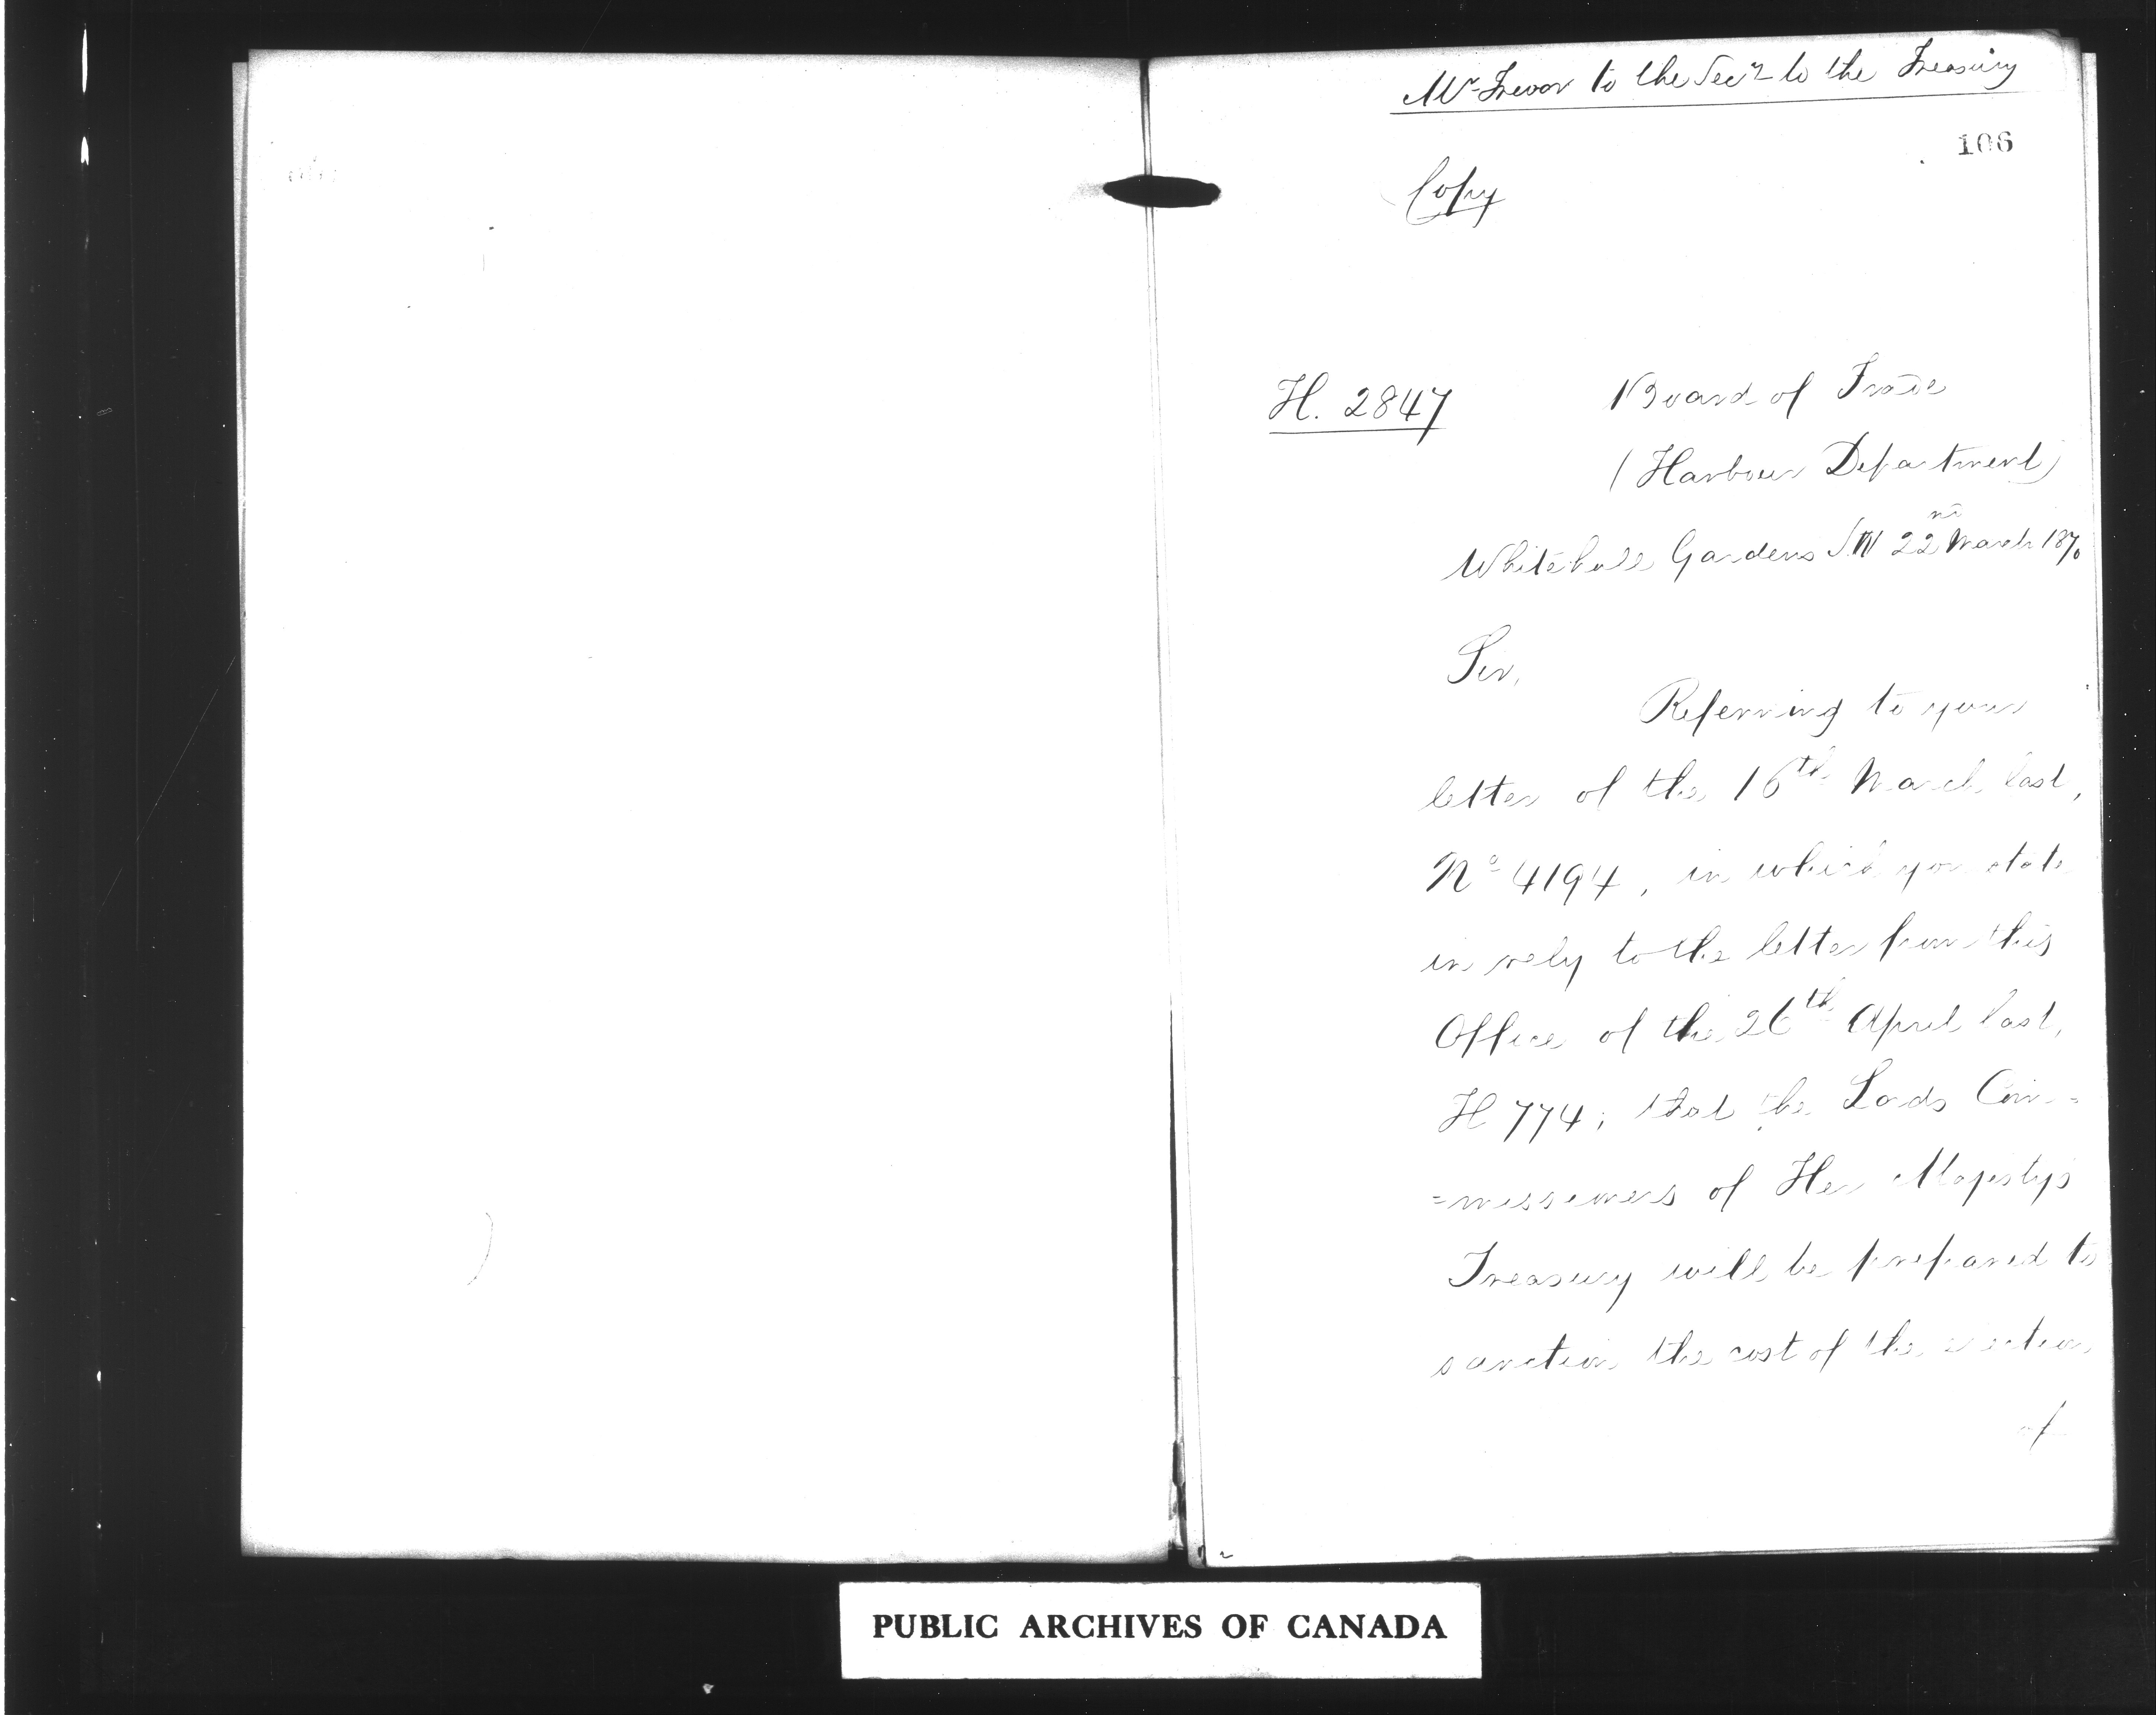 Mr Trevor to the Secy to the Treasury
106
Copy
H. 2847
Board of Trade
(Harbour Department)
Whitehall Gardens SW 22nd March 1870
Sir,
Referring to your
letter of the 16th March last,
No 4194, in which you state
in rely to the letter from this
Office of the 26th April last,
H 774; that the Lords Com=
=missioners of Her Majestys
Treasury will be prepared to
sanction the cost of the erection
of
PUBLIC ARCHIVES OF CANADA